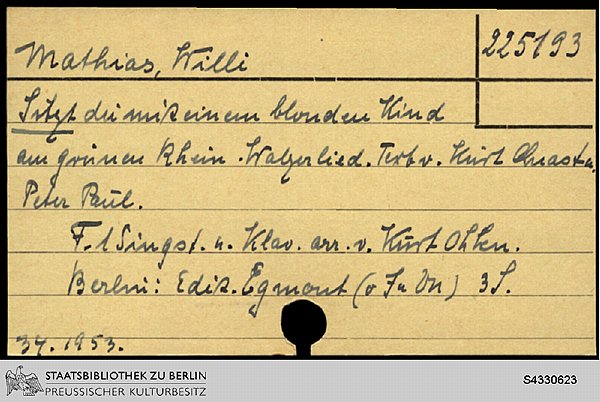 Mathias, Willi
225193
Sitzt du mit einem blonden Kind
am grünen Rhein. Walzerlied. Text v. Kurt u.
Peter Paul.
F. 1 Singst. u. Klav. arr. v. Kurt Ohlen.
Berlin: Edit. Egmont (o J.) 3 S.
34. 1953.
STAATSBIBLIOTHEK ZU BERLIN
PREUSSISCHER KULTURBESITZ
S4330623